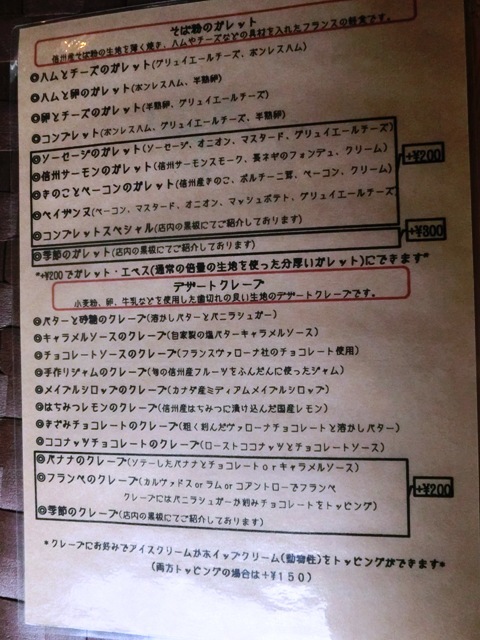 そば粉のガレット
信州産そば粉の生地を薄く焼き、ハムやチーズなどの具材を入れたフランスの軽食です。
◎ハムとチーズのガレット(グリュイエールチーズ、ボンレスハム)
◎ハムと卵のガレット(ボンレスハム、半熟卵)
◎卵とチーズのガレット(半熟卵、グリュイエールチーズ)
◎コンプレット(ボンレスハム、グリュイエールチーズ、半熟卵)
◎ソーセージのガレット(ソーセージ、オニオン、マスタード、グリュイエールチーズ)
◎信州サーモンのガレット(信州サーモンスモーク、長ネギのフォンデュ、クリーム)
◎きのことベーコンのガレット(信州産きのこ、ポルチーニ茸、ベーコン、クリーム)
◎ペイザンヌ(ベーコン、マスタード、オニオン、マッシュポテト、グリュイエールチーズ
◎コンプレットスペシャル(店内の黒板にてご紹介しております)
+¥200
◎季節のガレット(店内の黒板にてご紹介しております)
+¥300
*+¥200でガレット・エペス(通常の倍量の生地を使った分厚いガレット)にできます*
デザートクレープ
小麦粉、卵、牛乳などを使用した歯切れの良い生地のデザートクレープです。
◎バターと砂糖のクレープ(溶かしバターとバニラシュガー)
◎キャラメルソースのクレープ(自家製の塩バターキャラメルソース)
◎チョコレートソースのクレープ(フランスヴァローナ社のチョコレート使用)
◎手作りジャムのクレープ(旬の信州産フルーツをふんだんに使ったジャム)
◎メイプルシロップのクレープ(カナダ産ミディアムメイプルシロップ)
◎はちみつレモンのクレープ(信州産はちみつに漬け込んだ国産レモン)
◎きざみチョコレートのクレープ(粗く刻んだヴァローナチョコレートと溶かしバター)
◎ココナッツチョコレートのクレープ(ローストココナッツとチョコレートソース)
◎バナナのクレープ(ソテーしたバナナとチョコレートorキャラメルソース)
◎フランベのクレープ(カルヴァドスorラムorコアントローでフランベ
クレープにはバニラシュガーか刻みチョコレートをトッピング)
◎季節のクレープ(店内の黒板にてご紹介しております)
+¥200
*クレープにお好みでアイスクリームかホイップクリーム(動物性)をトッピングができます*
(両方トッピングの場合は+¥150)